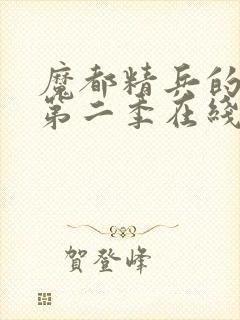 魔都精兵的
第二季在綫
賀登峰